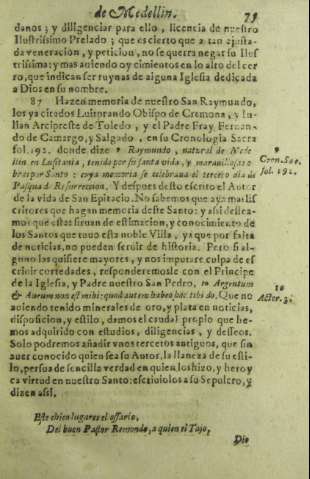 de Medellin. 75
danos; y diligenciar para ello, licencia de nuestro
Ilustrissimo Prelado; que es cierto que a tan ajusta-
da veneracion, y peticion, no se querra negar su Ilus
trissima: y mas auiendo oy cimientos en lo alto del cer
ro, que indican ser ruynas de alguna Iglesia dedicada
a Dios en su nombre.
87 Hazen memoria de nuestro San Raymundo,
los ya citados Luitprando Obispo de Cremona, y Iu-
lian Arcipreste de Toledo, y el Padre Fray Fernan-
do de Camargo, y Salgado, en su Cronologia Sacra
fol. 192. donde dize 9 Raymundo, natural de Mede
llin en Lusitania, tenido por su santa vida, y marauillosas o
bras por Santo: cuya memoria se celebraua el tercero dia de
Pasqua de Resurreccion. Y despues desto escrito el Autor
de la vida de San Epitacio. No sabemos que aya mas Es
critores que hagan memoria deste Santo: y assi dessea-
mos que estas siruan de estimacion, y conocimiento de
los Santos que tuuo esta noble Villa, ya que por falta
de noticias, no pueden seruir de historia. Pero si al-
guno las quisiere mayores, y nos imputare culpa de es
criuir cortedades, responderemosle con el Principe
de la Iglesia, y Padre nuestro San Pedro, 10 Argentum
& Aurum non est mihi: quod autem habeo hoc tibi do. Que no
auiendo tenido minerales de oro, y plata en noticias,
disposicion, y estilo, damos el caudal propio que he-
mos adquirido con estudios, diligencias, y desseos.
Solo podremos añadir vnos tercetos antiguos, que sin
auer conocido quien sea su Autor, la llaneza de su esti-
lo, persuade sencilla verdad en quien los hizo, y heroy
ca virtud en nuestro Santo: escriuiolos a su Sepulcro, y
dizen assi.
9
Cron. Sac.
fol. 192.
10
Actor. 3.
Este es
en lugar es el ossario,
Del buen Pastor Remondo, a quien el Tajo,
Dio